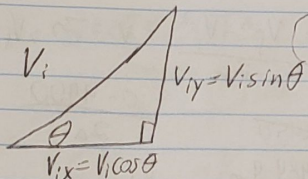 Vi
Viy = Vi sinθ
θ
Vix = Vi cosθ